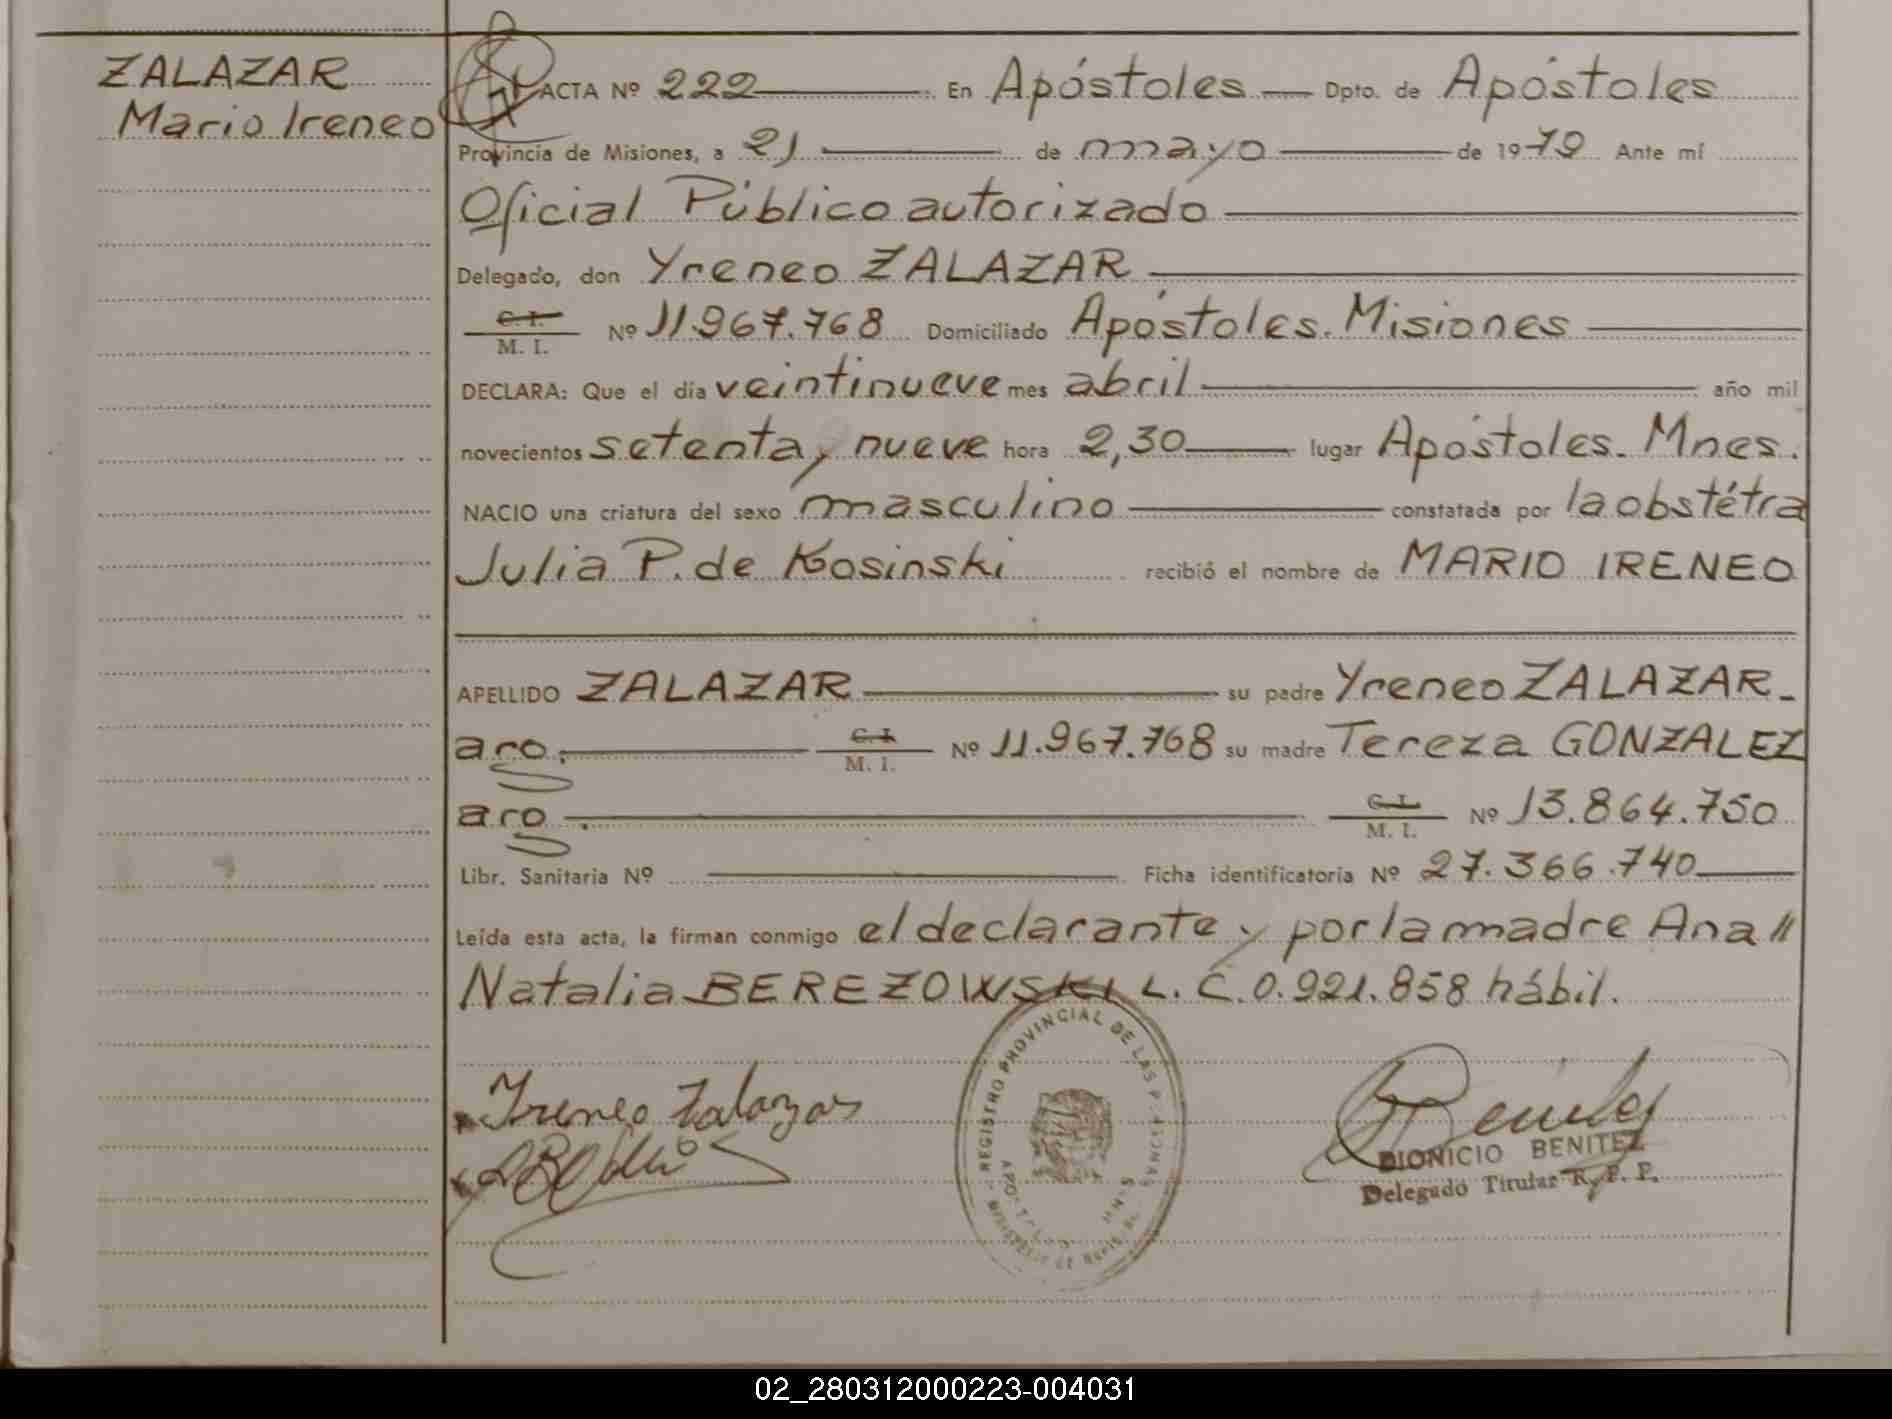 ZALAZAR
Mario Ireneo
ACTA Nº 222 En Apóstoles Dpto. de Apóstoles
Provincia de Misiones, a 21 de mayo de 1979 Ante mí
Oficial Público autorizado
Delegado, don Yreneo ZALAZAR
C. I.
M. I. Nº 11.967.768 Domiciliado Apóstoles. Misiones
DECLARA: Que el día veintinueve mes abril año mil
novecientos setenta y nueve hora 2,30 lugar Apóstoles. Mnes.
NACIO una criatura del sexo masculino constatada por la obstétra
Julia P. de Kosinski recibió el nombre de MARIO IRENEO
APELLIDO ZALAZAR su padre Yreneo ZALAZAR-
arg. C. I.
M. I. Nº 11.967.768 su madre Tereza GONZALEZ
arg. C. I.
M. I. Nº 13.864.750
Libr. Sanitaria Nº Ficha identificatoria Nº 27.366.740
Leída esta acta, la firman conmigo el declarante y por la madre Ana //
Natalia BEREZOWSKI L. C. 0.921.858 hábil.
Ireneo Zalazar
REGISTRO PROVINCIAL DE LAS PERSONAS
DIONICIO BENITEZ
Delegado Titular R. P. P.
02_280312000223-004031